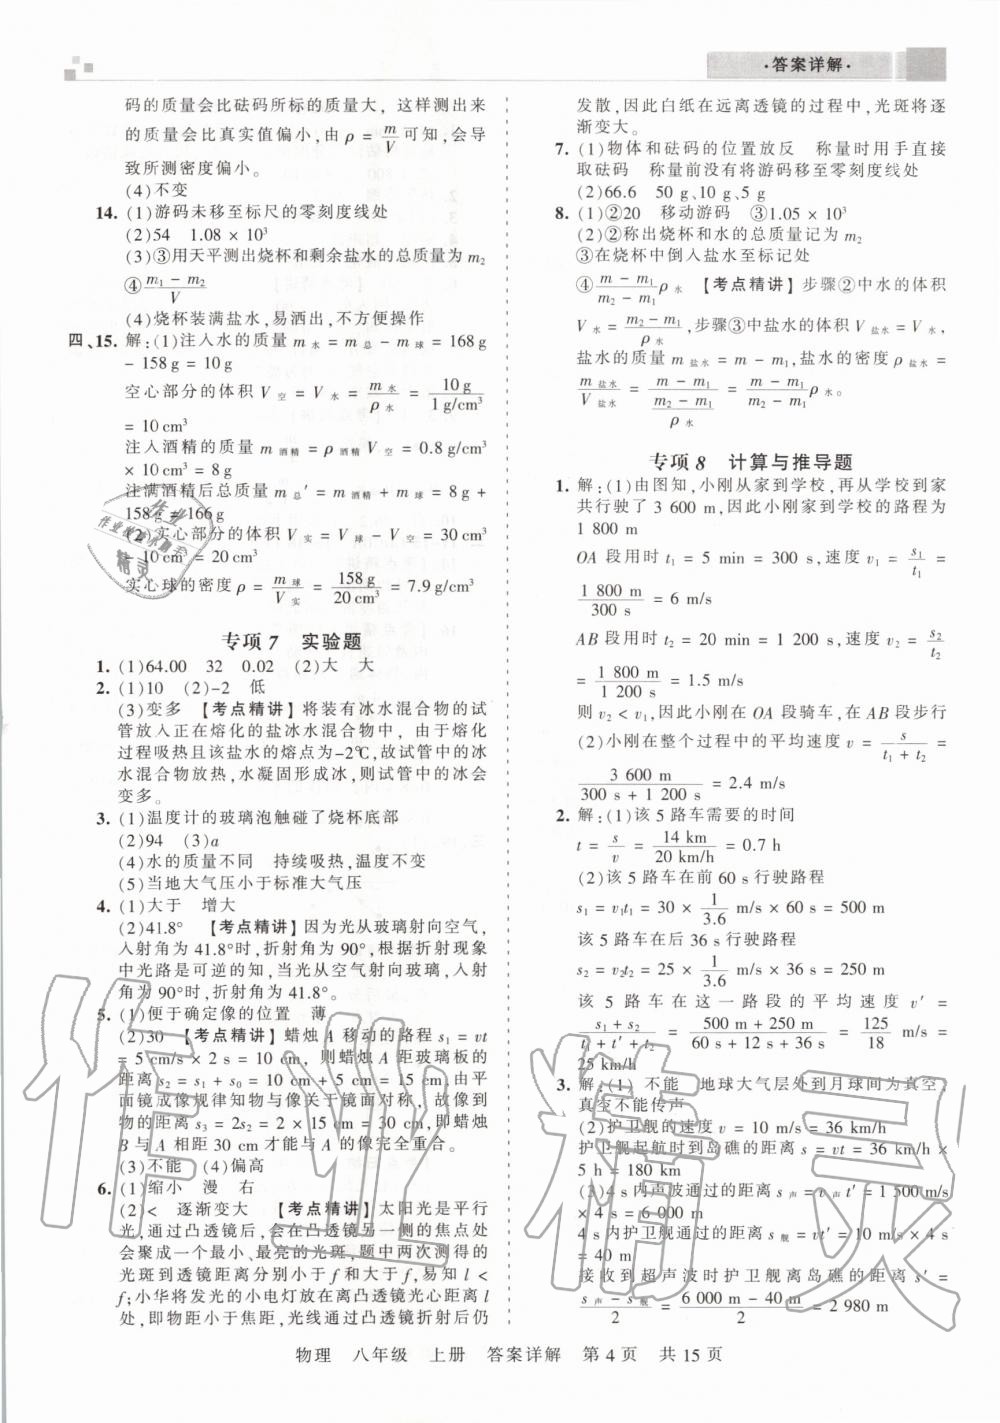 ·答案详解·
码的质量会比砝码所标的质量大，这样测出来
的质量会比真实值偏小,由 ρ = m/V 可知,会导
致所测密度偏小。
(4)不变
14. (1)游码未移至标尺的零刻度线处
(2)54　1.08 × 10³
(3)③用天平测出烧杯和剩余盐水的总质量为 m₂
④ (m₁ − m₂)/V
(4)烧杯装满盐水,易洒出,不方便操作
四、15. 解:(1)注入水的质量 m水 = m总 − m球 = 168 g
− 158 g = 10 g
空心部分的体积 V空 = V水 = m水/ρ水 = 10 g/(1 g/cm³)
= 10 cm³
注入酒精的质量 m酒精 = ρ酒精 V空 = 0.8 g/cm³
× 10 cm³ = 8 g
注满酒精后总质量 m总′ = m酒精 + m球 = 8 g +
158 g = 166 g
(2)实心部分的体积 V实 = V球 − V空 = 30 cm³
− 10 cm³ = 20 cm³
实心球的密度 ρ = m球/V实 = 158 g/20 cm³ = 7.9 g/cm³
专项 7　实验题
1. (1)64.00　32　0.02　(2)大　大
2. (1)10　(2)-2　低
(3)变多　【考点精讲】将装有冰水混合物的试
管放入正在熔化的盐冰水混合物中，由于熔化
过程吸热且该盐水的熔点为-2℃,故试管中的冰
水混合物放热,水凝固形成冰,则试管中的冰会
变多。
3. (1)温度计的玻璃泡触碰了烧杯底部
(2)94　(3)a
(4)水的质量不同　持续吸热,温度不变
(5)当地大气压小于标准大气压
4. (1)大于　增大
(2)41.8°　【考点精讲】因为光从玻璃射向空气,
入射角为 41.8°时,折射角为 90°,根据折射现象
中光路是可逆的知,当光从空气射向玻璃,入射
角为 90°时,折射角为 41.8°。
5. (1)便于确定像的位置　薄
(2)30　【考点精讲】蜡烛 A 移动的路程 s₁ = vt
= 5 cm/s × 2 s = 10 cm，则蜡烛 A 距玻璃板的
距离 s₂ = s₁ + s₀ = 10 cm + 5 cm = 15 cm,由平
面镜成像规律知物与像关于镜面对称，故像到
物的距离 s₃ = 2s₂ = 2 × 15 cm = 30 cm,即蜡烛
B 与 A 相距 30 cm 才能与 A 的像完全重合。
(3)不能　(4)偏高
6. (1)缩小　漫　右
(2)<　逐渐变大　【考点精讲】太阳光是平行
光,通过凸透镜后,会在凸透镜另一侧的焦点处
会聚成一个最小、最亮的光斑,题中两次测得的
光斑到透镜距离分别小于 f 和大于 f,易知 l <
f;小华将发光的小电灯放在离凸透镜光心距离 l
处,即物距小于焦距,光线通过凸透镜折射后仍
发散,因此白纸在远离透镜的过程中,光斑将逐
渐变大。
7. (1)物体和砝码的位置放反　称量时用手直接
取砝码　称量前没有将游码移至零刻度线处
(2)66.6　50 g、10 g、5 g
8. (1)②20　移动游码　③1.05 × 10³
(2)②称出烧杯和水的总质量记为 m₂
③在烧杯中倒入盐水至标记处
④ (m − m₁)/(m₂ − m₁) ρ水　【考点精讲】步骤②中水的体积
V水 = (m₂ − m₁)/ρ水 ,步骤③中盐水的体积 V盐水 = V水,
盐水的质量 m盐水 = m − m₁,盐水的密度 ρ盐水 =
m盐水/V盐水 = (m − m₁)/((m₂ − m₁)/ρ水) = (m − m₁)/(m₂ − m₁) ρ水。
专项 8　计算与推导题
1. 解:(1)由图知,小刚从家到学校,再从学校到家
共行驶了 3 600 m,因此小刚家到学校的路程为
1 800 m
OA 段用时 t₁ = 5 min = 300 s,速度 v₁ = s₁/t₁ =
1 800 m/300 s = 6 m/s
AB 段用时 t₂ = 20 min = 1 200 s,速度 v₂ = s₂/t₂
= 1 800 m/1 200 s = 1.5 m/s
则 v₂ < v₁,因此小刚在 OA 段骑车,在 AB 段步行
(2)小刚在整个过程中的平均速度 v = s/(t₁ + t₂) =
3 600 m/(300 s + 1 200 s) = 2.4 m/s
2. 解:(1)该 5 路车需要的时间
t = s/v = 14 km/(20 km/h) = 0.7 h
(2)该 5 路车在前 60 s 行驶路程
s₁ = v₁t₁ = 30 × 1/3.6 m/s × 60 s = 500 m
该 5 路车在后 36 s 行驶路程
s₂ = v₂t₂ = 25 × 1/3.6 m/s × 36 s = 250 m
该 5 路车在这一路段的平均速度 v′ =
(s₁ + s₂)/(t₁ + t′ + t₂) = (500 m + 250 m)/(60 s + 12 s + 36 s) = 125/18 m/s =
25 km/h
3. 解:(1)不能　地球大气层外到月球间为真空,
真空不能传声
(2)护卫舰的速度 v = 10 m/s = 36 km/h
护卫舰起航时到岛礁的距离 s = vt = 36 km/h ×
5 h = 180 km
(3)4 s 内声波通过的距离 s声 = v声 t′ = 1 500 m/s
× 4 s = 6 000 m
4 s 内护卫舰通过的距离 s舰 = vt′ = 10 m/s × 4 s
= 40 m
接收到超声波时护卫舰离岛礁的距离 s′ =
(s声 − s舰)/2 = (6 000 m − 40 m)/2 = 2 980 m
物理　八年级　上册　答案详解　第 4 页　共 15 页
作业精灵